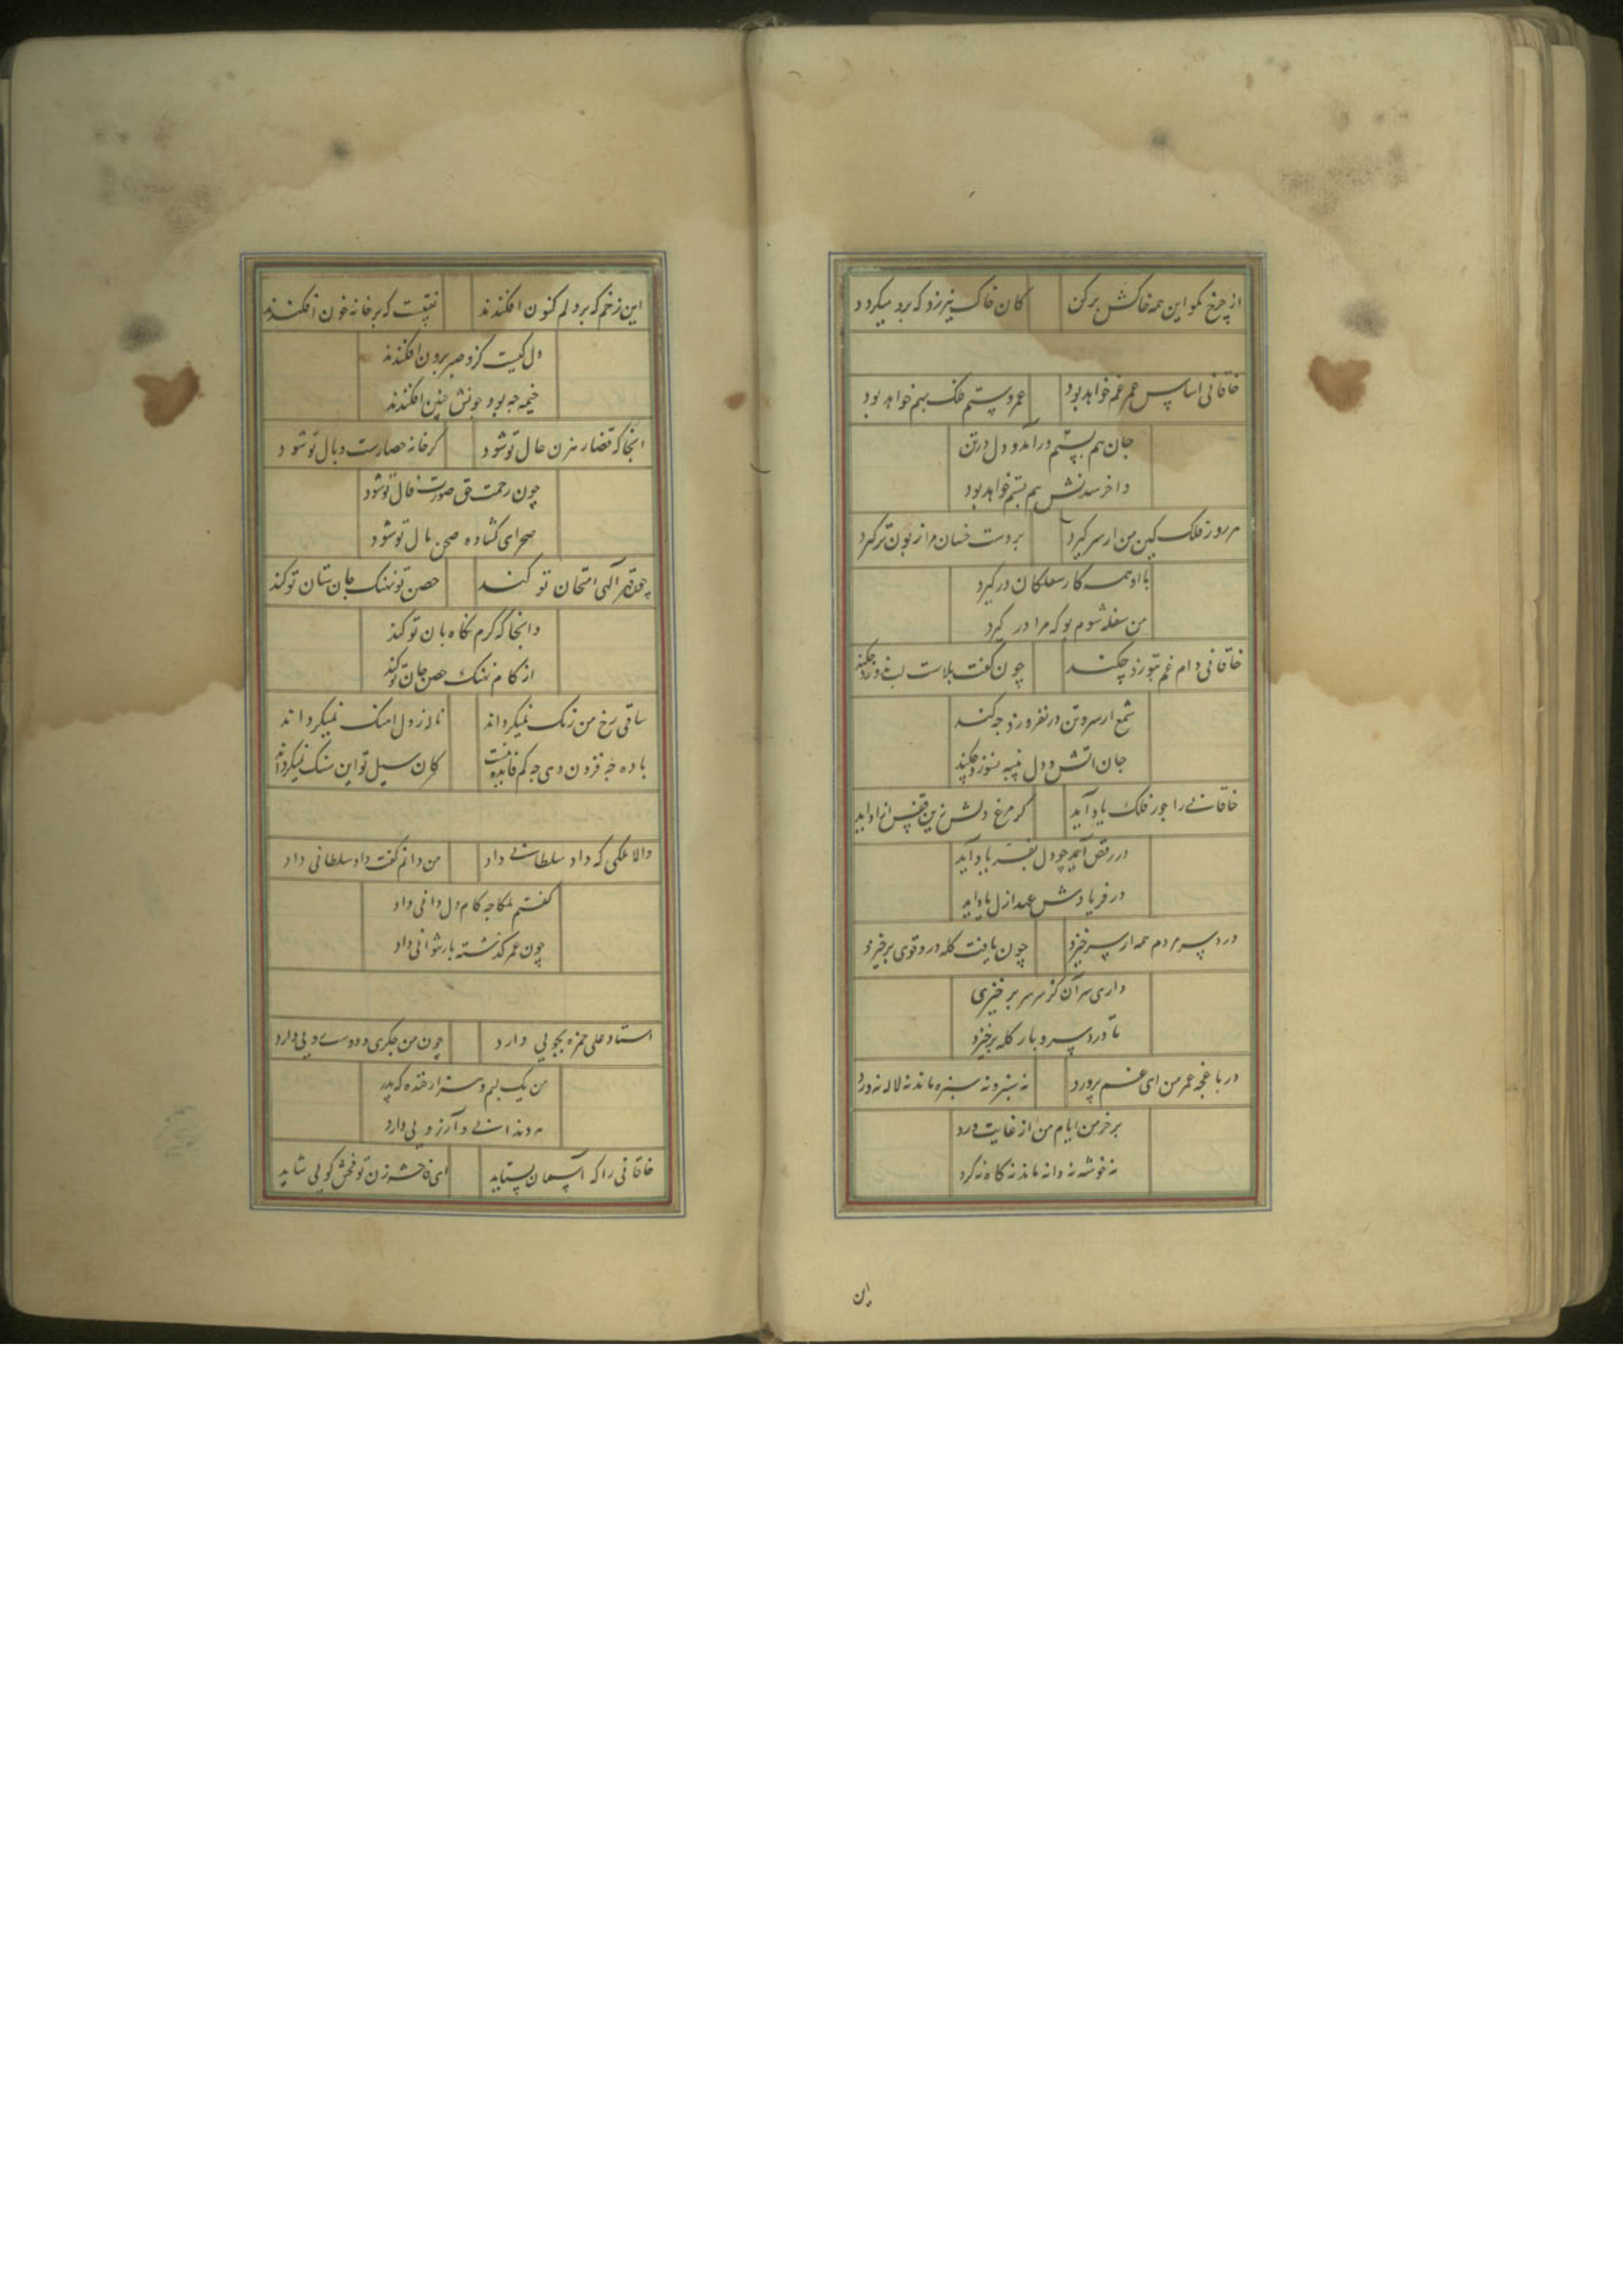 از چرخ مگو این همه خاکش بر کن کان خاک نیرزد که برو میکردد
خاقانی اساس عمر غم خواهد بود عمر و ستم فلک بهم خواهد بود
جان هم بستم درآمد و دل در تن
و اخر شدنش هم بستم خواهد بود
هر روز فلک کین من از سر کیرد بر دست خسان مرا زبون تر کیرد
با او همه کار سفلکان در کیرد
من سفله شوم بو که مرا در کیرد
خاقانی دام غم بتوزد چکند چون کفت بلاست لب ندوزد چکند
شمع ار سر و تن در نفروزد چه کند
جان اتش و دل پنبه نسوزد چکند
خاقانی را جور فلک یاد آید کر مرغ دلش زین قفس ازاد آید
در رقص آید چو دل بفریاد آید
در فریادش عهد ازل یاد آید
درد سر مردم همه از سر خیزد چون یافت کله درد قوی برخیزد
داری سر آن کز سر سر بر خیزی
تا درد سر و بار کله برخیزد
در باغچه عمر من ای غم پرورد نه سرو نه سبزه ماند نه لاله نه ورد
بر خرمن ایام من از غایت درد
نه خوشه نه دانه ماند نه کاه نه کرد
این
این زخم که بر دلم کنون افکندند نقبیست که بر خانه خون افکندند
دل کیست کزو صبر برون افکندند
خیمه چه بود چونش چنین افکندند
انجا که قضا رهزن حال تو شود کر خانه حصارست وبال تو شود
چون رحمت حق صورت فال تو شود
صحرای کشاده حصن مال تو شود
چون قهر آلهی امتحان تو کند حصن تو نهنک جان ستان تو کند
وانجا که کرم نکاه بان تو کند
از کام نهنک حصن جان تو کند
ساقی رخ من رنک نمیکرداند ناله ز دل اهنک نمیکرداند
باده چه فزون دهی چه کم فایده نیست کان سیل تو این سنک نمیکرداند
والا ملکی که داد سلطانی داد من دانم کفت داد سلطانی داد
کفتم ملکا چه کام دل دانی داد
چون عمر کذشته باز نتوانی داد
استاد علی حمزه بجویی دارد چون من جکری و دست و رویی دارد
من یک لبم و هزار خنده که پدر
ده دندانی و آرزویی دارد
خاقانی را که آسمان بستاید ای فاحشه زن تو فحش کویی شاید